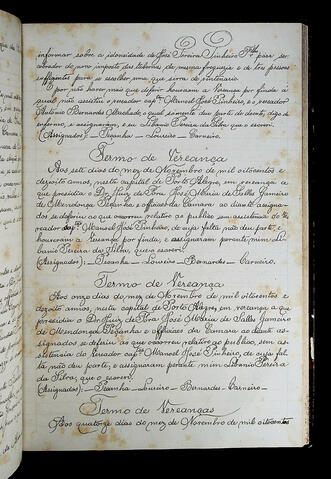 informar sobre a idoneidade de José Pereira Pinheiro Pto. para ser
cobrador do novo imposto das tabernas da mesma freguezia e de tres pessoas
suffientes para se escolher uma que sirva de vintenario.
E por não haver mais que deferir houveram a Vereança por finda á
qual não assistiu o vereador capm. Manuel José Pinheiro, e o vereador
Antonio Bernardes Machado, o qual sómente deu parte de doente, digo de
enfermo, e assignaram, e eu Libanio Pereira da Silva, que o escrevi.
(Assignados) – Peçanha – Loureiro – Carneiro.
Termo de Vereança
Aos sete dias do mez de Novembro de mil oitocentos e
dezoito annos, nesta capital de Porto Alegre, em vereança a
que presidiu o Dr. Juiz de Fora José Maria de Salles Gameiro
de Mendonça Peçanha e officiaes da Camara ao diante assig-
nados se deferiu ao que occorreu relativo ao publico sem assistencia do ve-
reador capm. Manuel José Pinheiro, de cuja falta não deu parte, e
houveram a Vereança por finda, e assignaram perante mim Li-
banio Pereira da Silva, que a escrevi.
(Assignados) – Peçanha – Loureiro – Bernardes – Carneiro.
Termo de Vereança
Aos onze dias do mez de Novembro, de mil oitocentos e
dezoito annos, nesta capital de Porto Alegre, em vereança a que
presidiu o Dr. Juiz de Fora José Maria de Salles Gameiro
de Mendonça Peçanha e officiaes da Camara ao diante as-
signados se deferiu ao que occorreu relativo ao publico, sem as-
sistencia do Vereador capm. Manuel José Pinheiro, de cuja fal-
ta não deu parte, e assignaram perante mim Libanio Pereira
da Silva, que o escrevi.
(Assignados) – Peçanha – Loureiro – Bernardes – Carneiro –
Termo de Vereanças
Aos quatorze dias do mez de Novembro de mil oitocentos